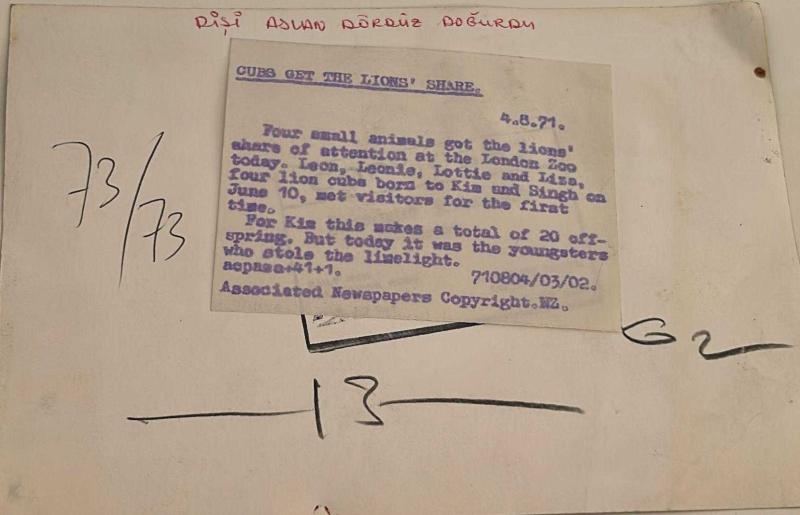 DİŞİ ASLAN DÖRDÜZ DOĞURDU
CUBS GET THE LIONS' SHARE.
4.8.71.
Four small animals got the lions'
share of attention at the London Zoo
today. Leon, Leonie, Lottie and Liza,
four lion cubs born to Kim and Singh on
June 10, met visitors for the first
time.
For Kim this makes a total of 20 off-
spring. But today it was the youngsters
who stole the limelight.
acpasa+41+1.
710804/03/02.
Associated Newspapers Copyright.NZ.
73/73
G2
13